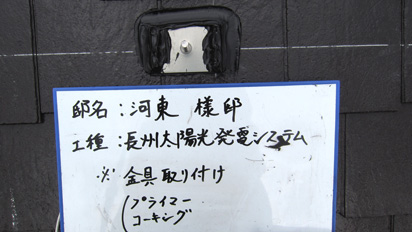 邸名：河東 様邸
工種：長州太陽光発電システム
※ 金具取り付け
(プライマー
コーキング